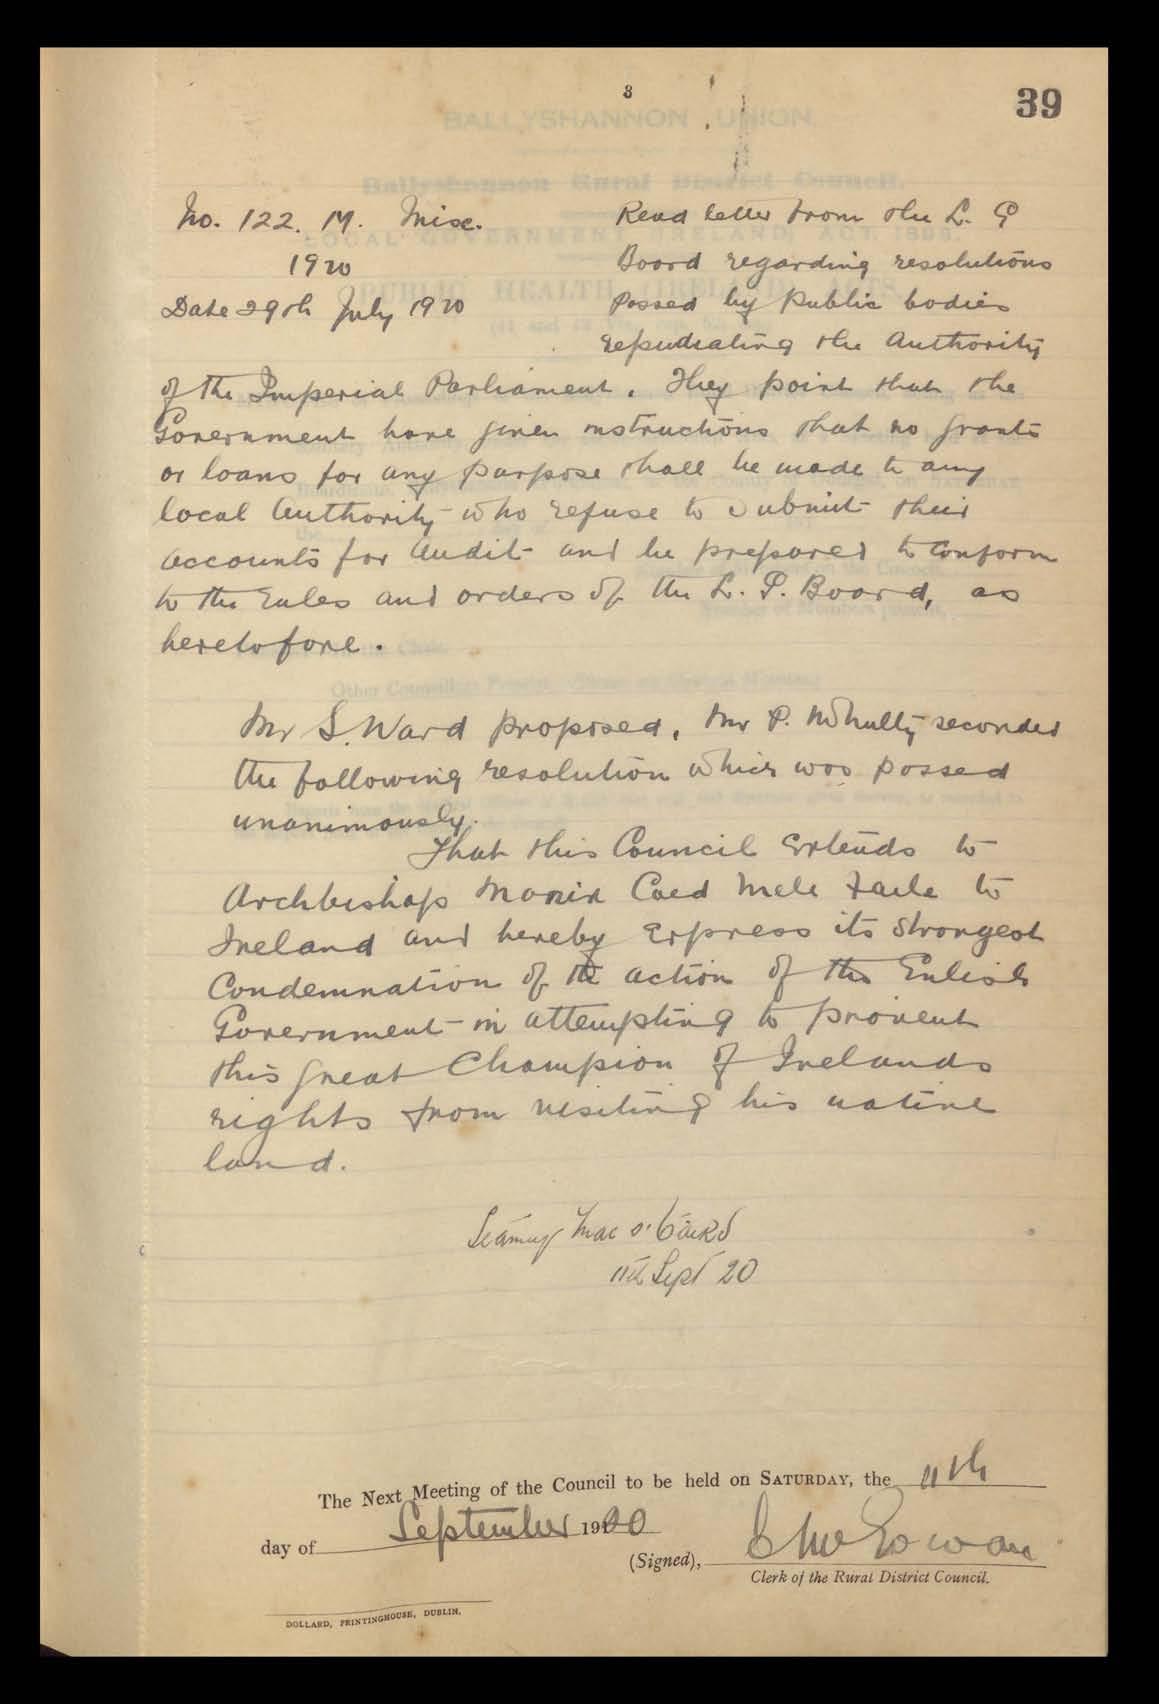 3
39
BALLYSHANNON UNION.
Ballyshannon Rural District Council.
LOCAL GOVERNMENT (IRELAND) ACT, 1898.
PUBLIC HEALTH (IRELAND) ACTS
No. 122. M. Misc.
1920
Date 29th July 1920
Read letter from the L. G
Board regarding resolutions
passed by public bodies
repudiating the Authority
of the Imperial Parliament. They point that the
Government have given instructions that no grants
or loans for any purpose shall be made to any
local Authority who refuse to submit their
accounts for Audit and be prepared to conform
to the rules and orders of the L. G. Board, as
heretofore.
Mr S. Ward proposed, Mr P. McNulty seconded
the following resolution which was passed
unanimously.
That this Council Extends to
Archbishop Manix Caed Mele Faile to
Ireland and hereby Express its strongest
Condemnation of the action of the Enlish
Government in attempting to prevent
this great Champion of Irelands
rights from visiting his native
land.
Seamus Mac a' Baird
11th Sept 20
The Next Meeting of the Council to be held on SATURDAY, the 11th
day of September 1920
(Signed),
Clerk of the Rural District Council.
DOLLARD, PRINTINGHOUSE, DUBLIN.